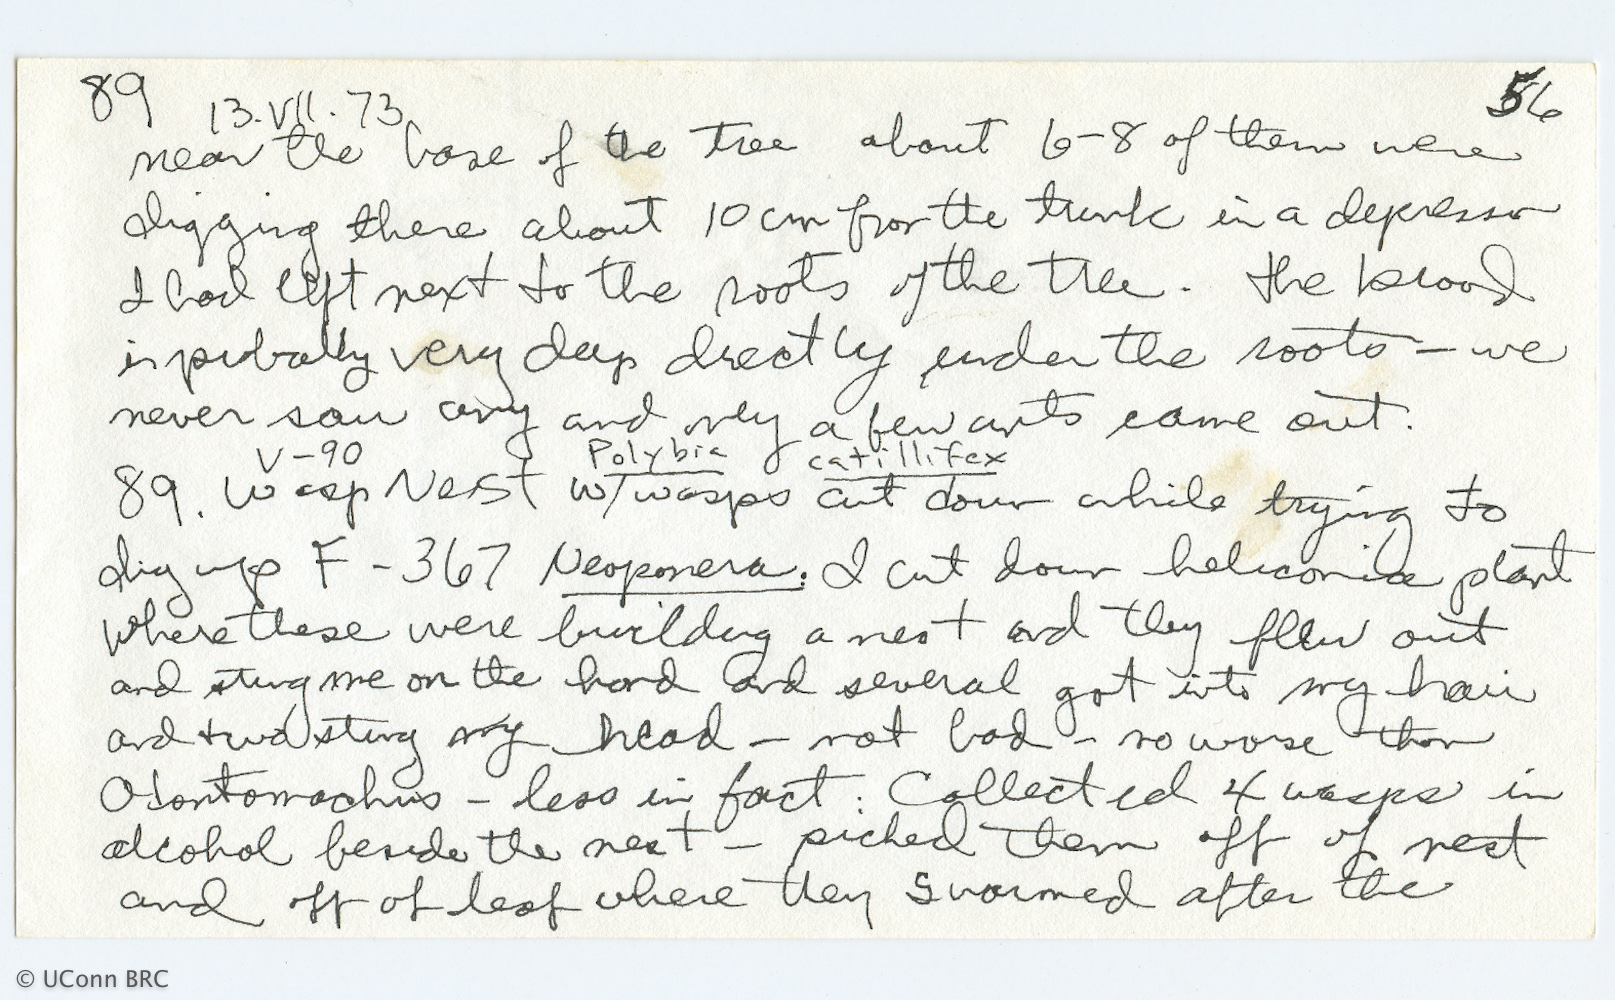 89 13.VII.73 56
near the base of the tree about 6-8 of them were
digging there about 10 cm from the trunk in a depression
I had left next to the roots of the tree. The brood
is probably very deep directly under the roots - we
never saw any and only a few ants came out.
V-90 Polybia catillifex
89. Wasp Nest w/wasps cut down while trying to
dig up F-367 Neoponera. I cut down heliconia plant
where these were building a nest and they flew out
and stung me on the hand and several got into my hair
and two stung my head - not bad - no worse than
Odontomachus - less in fact. Collected 4 wasps in
alcohol beside the nest - picked them off of nest
and off of leaf where they swarmed after the
© UConn BRC